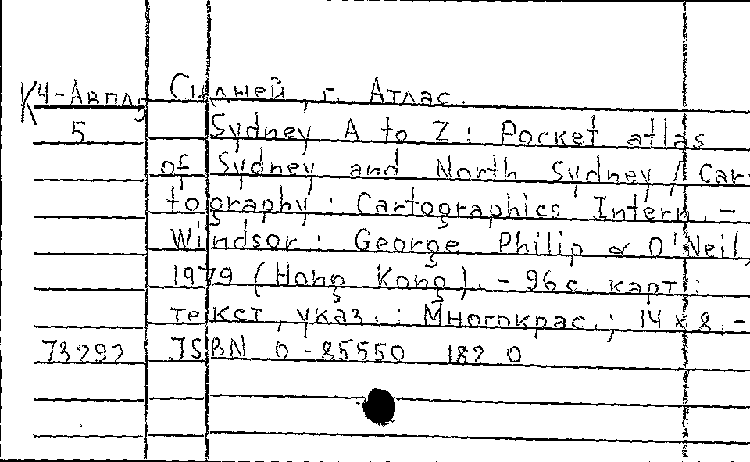 К4-Авпл5 Сидней, г. Атлас.
5 Sydney A to Z: Pocket atlas
of Sydney and North Sydney / Car-
tography: Cartographics Intern. -
Windsor: George Philip & O'Neil,
1979 (Hong Kong). - 96 с. карт:
текст, указ.: Многокрас.; 14 x 8. -
73292 ISBN 0-85550 182 0